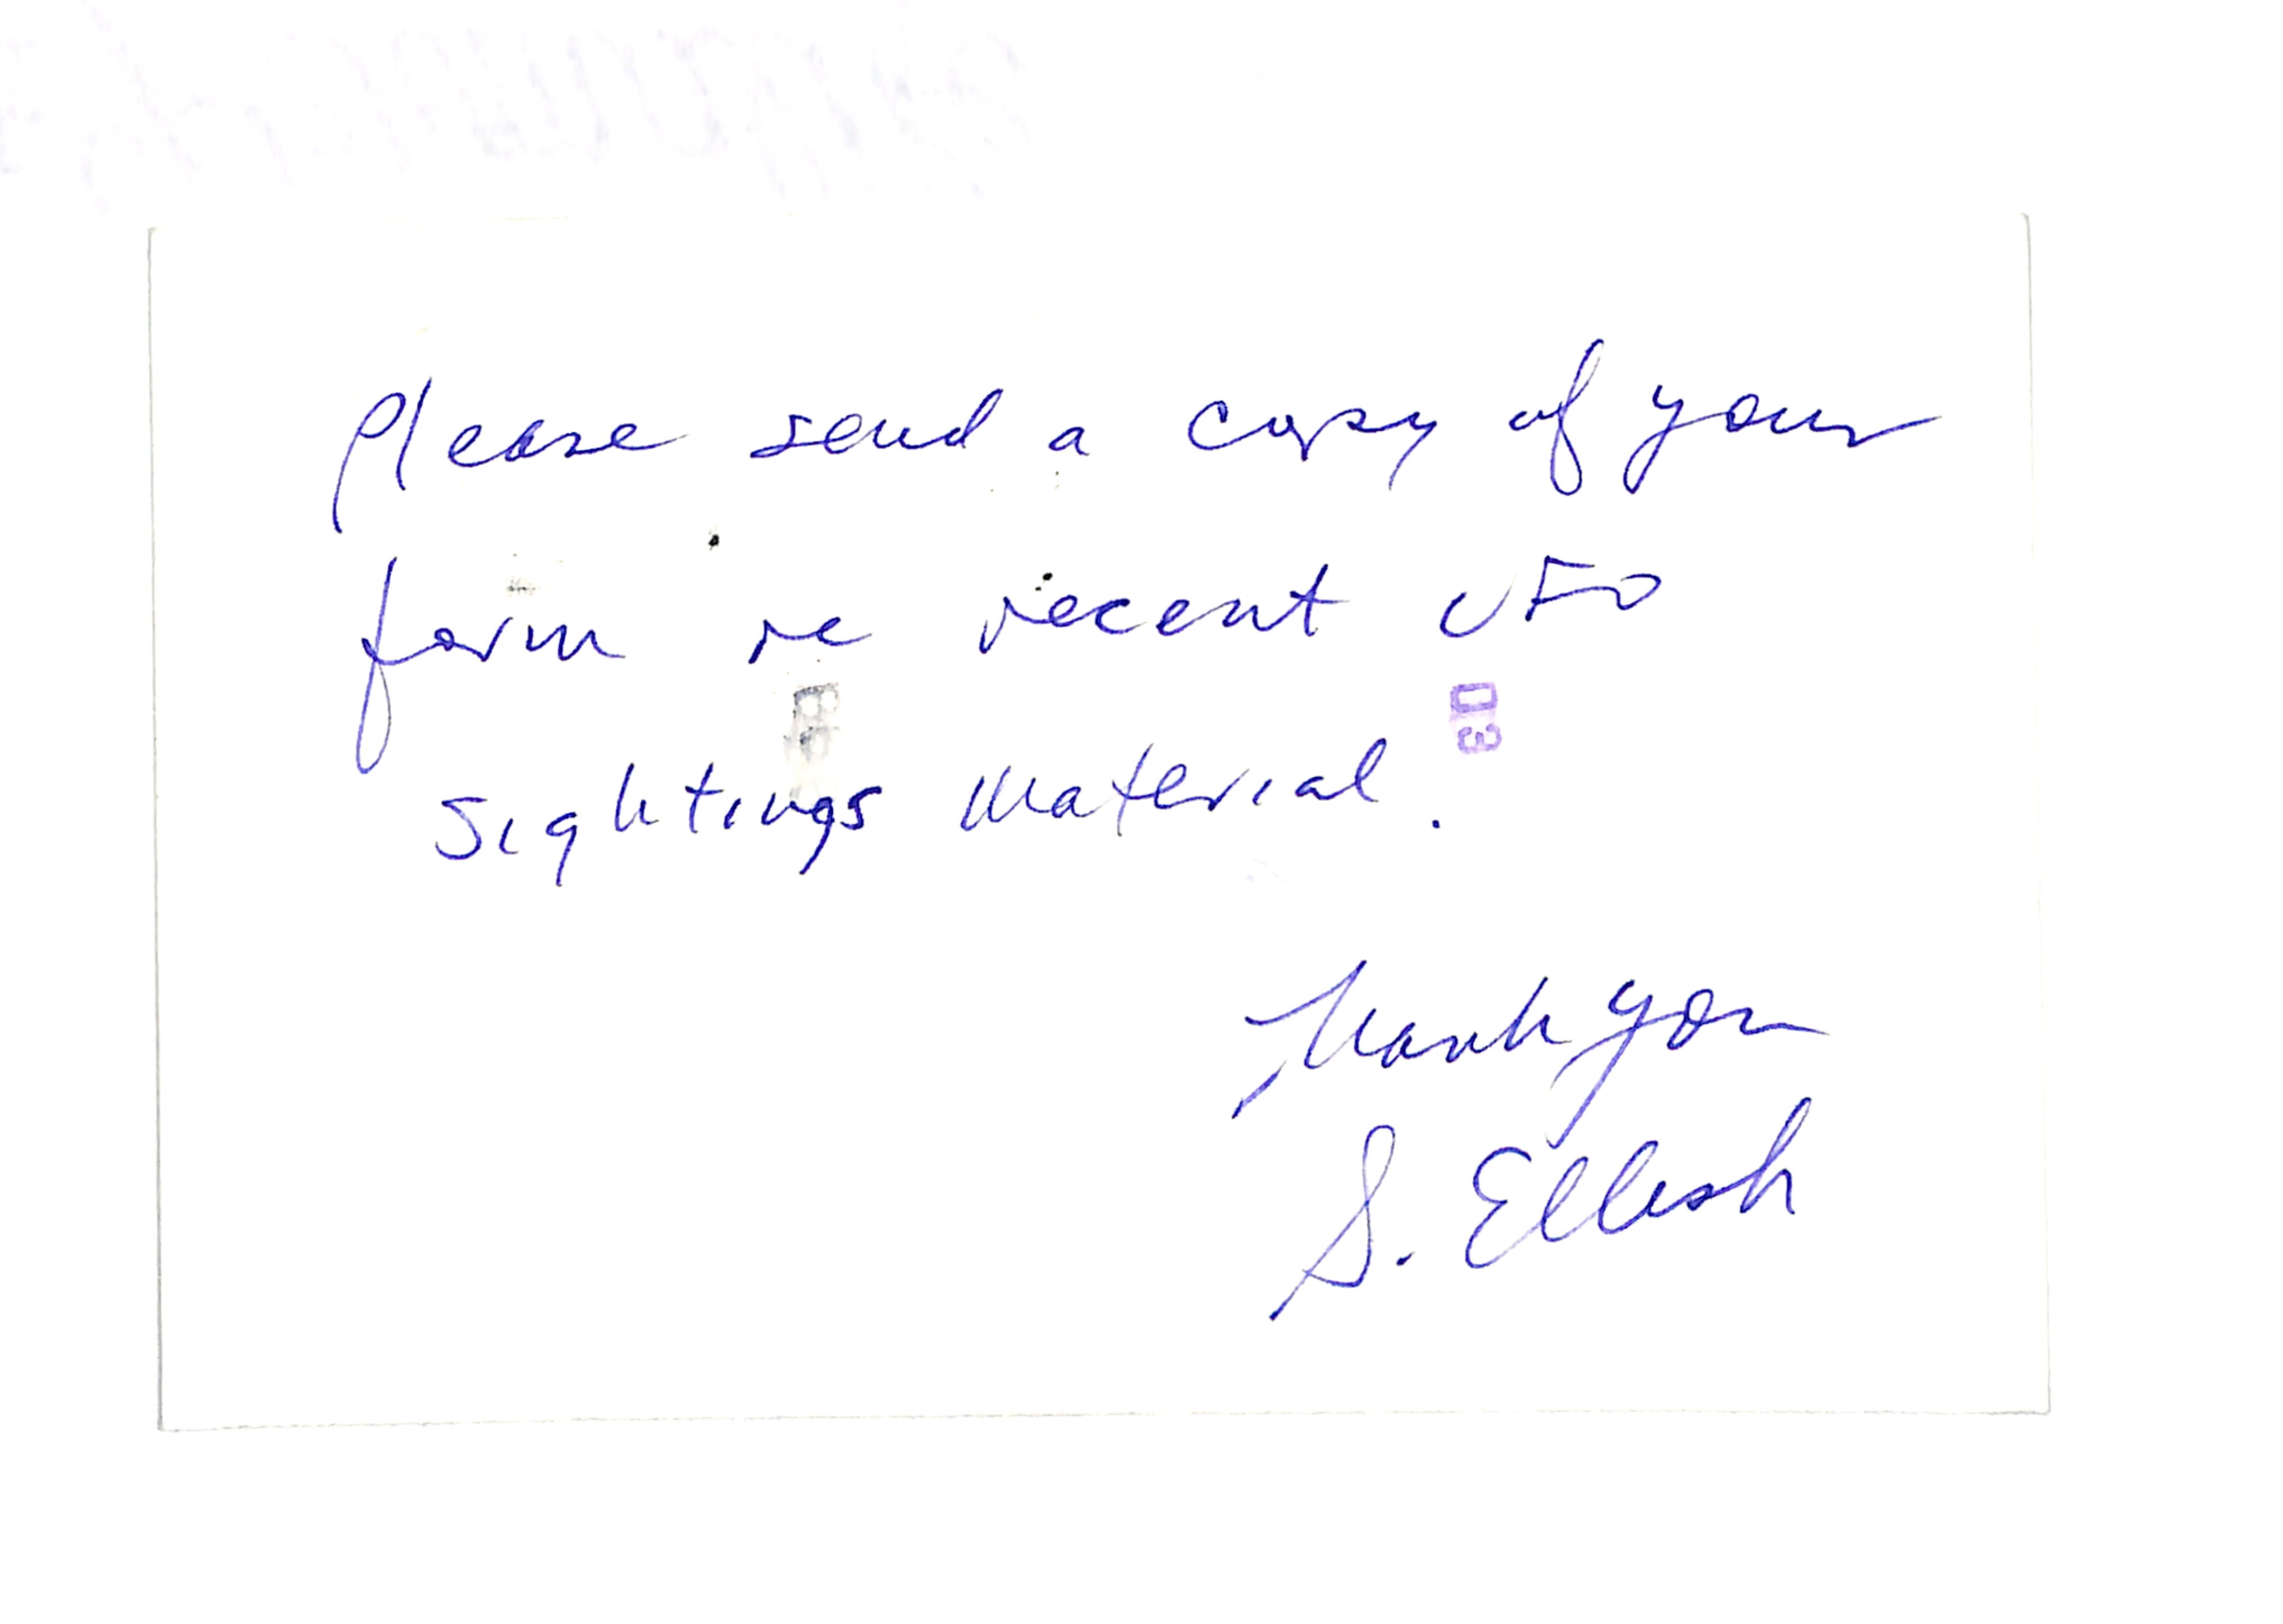 Please send a copy of your
form re recent UFO
sightings material.
Thank you
S. Ellish